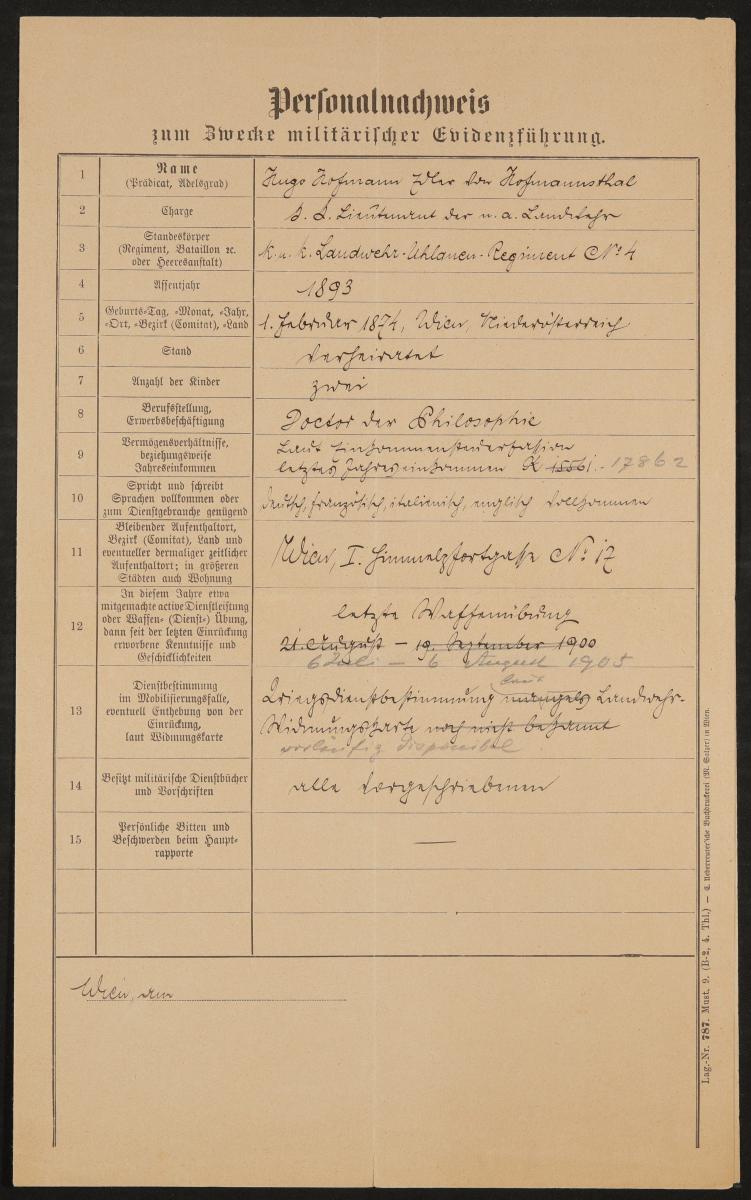 Personalnachweis
zum Zwecke militärischer Evidenzführung.
1
Name
(Prädicat, Adelsgrad)
Hugo Hofmann Edler von Hofmannsthal
2
Charge
k. k. Lieutenant der n. a. Landwehr
3
Standeskörper
(Regiment, Bataillon ꝛc.
oder Heeresanstalt)
k. u. k. Landwehr-Uhlanen-Regiment No 4
4
Assentjahr
1893
5
Geburts-Tag, -Monat, -Jahr,
-Ort, -Bezirk (Comitat), -Land
1. Februar 1874, Wien, Niederösterreich
6
Stand
verheiratet
7
Anzahl der Kinder
zwei
8
Berufsstellung,
Erwerbsbeschäftigung
Doctor der Philosophie
9
Vermögensverhältnisse,
beziehungsweise
Jahreseinkommen
Laut Einkommensteuerfassion
letztes Jahreseinkommen K 17862
10
Spricht und schreibt
Sprachen vollkommen oder
zum Dienstgebrauche genügend
deutsch, französisch, italienisch, englisch vollkommen
11
Bleibender Aufenthaltort,
Bezirk (Comitat), Land und
eventueller dermaliger zeitlicher
Aufenthaltort; in größeren
Städten auch Wohnung
Wien, I. Himmelpfortgasse No 17
12
In diesem Jahre etwa
mitgemachte active Dienstleistung
oder Waffen- (Dienst-) Übung,
dann seit der letzten Einrückung
erworbene Kenntnisse und
Geschicklichkeiten
letzte Waffenübung
21. August – 19. September 1900
6 Juli – 6 August 1905
13
Dienstbestimmung
im Mobilisierungsfalle,
eventuell Enthebung von der
Einrückung,
laut Widmungskarte
laut
Kriegsdienstbestimmung mangels Landwehr-
Widmungskarte noch nicht bekannt
vorläufig disponibel
14
Besitzt militärische Dienstbücher
und Vorschriften
alle vorgeschriebenen
15
Persönliche Bitten und
Beschwerden beim Haupt-
rapporte
—
Wien, am
Lag.-Nr. 787. Must. 9. (B-2, 4. Thl.) — C. Ueberreuter'sche Buchdruckerei (M. Salzer) in Wien.